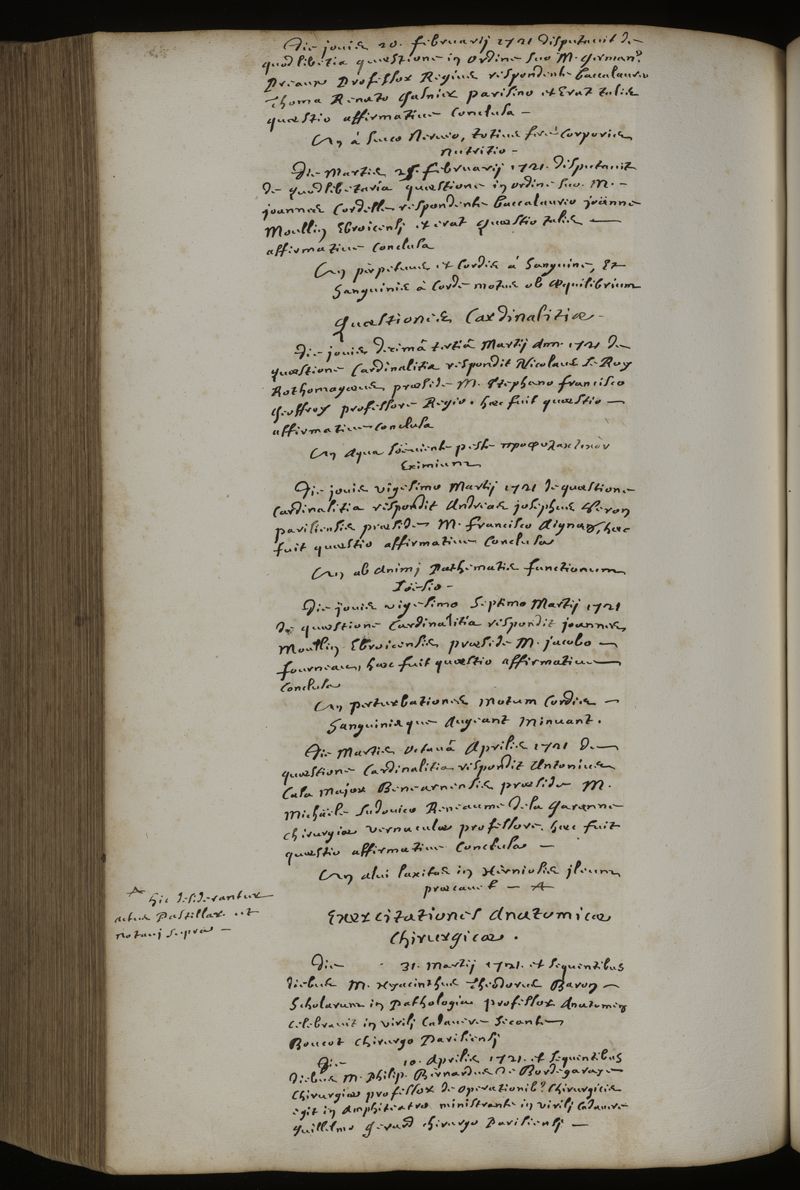 Die jovis 20. februarij 1721 disputavit de
quodlibetia quæstione in ordine suo M. German?
Preaux Professor Regius respondente baccalaureo
Thoma Renato Gasnier parisino et Erat talis
quæstio affirmative conclusa –
An à succo Nerveo, totius ferè Corporis
nutritio –
Die Martis 25. februarij 1721. disputavit
de quodlibetaria quæstione in ordine suo. M. –
joannes Cordelle respondente baccalaureo joanne
Moullin Ebroicensj et erat quæstio talis —
affirmative conclusa
An perpetuus et Cordis à Sanguine, Et
Sanguinis à Corde motus ob æquilibrium
Quæstiones Cardinalitiæ –
Die jovis decimâ tertiâ Martij ann. 1721 de
quæstione Cardinalitia respondit Nicolaus Le Roy
Rothomagæus, præside M. Stephano francisco
Geoffroy professore Regio. hæc fuit quæstio —
affirmative conclusa
An Aqua sæviente peste προφυλακτικὸν
Eximium
Die jovis vigesimo Martij 1721 de quæstione
Cardinalitia respondit Andreas josephus
parisiensis præside M. francisco Aignan, hæc
fuit quæstio affirmative conclusa
An ab Animj Pathematis functionum
læsio –
Die jovis vigesimo septimo Martij 1721
de quæstione Cardinalitia respondit joannes
Moullin Ebroicensis præside M. jacobo —
fourneau, hæc fuit quæstio affirmative —
conclusa
An perturbationes Motum Cordis —
Sanguinisque Augeant Minuant.
Die Martis octavâ Aprilis 1721 De —
quæstione Cardinalitia respondit Antonius
Casamajor Benearnensis præside M.
Michaële Ludovico Reneaume de la Garenne
chirurgiæ vernaculæ professore. hæc fuit
quæstio affirmative conclusa —
An alvi laxitas in Herniosis jleum
præcavet — A
A hic desiderantur
actus Pastillar. ut
notavj supra —
Exercitationes Anatomicæ
Chirurgicæ.
Die 31. Martij 1721. et sequentibus
diebus M. Hyacinthus Theodorus Baron —
Scholarum in Pathologia professor Anatomen
celebravit in virilj Cadavere secante
Boucot Chirurgo Parisiensj
Die 10. Aprilis 1721. et sequentibus
diebus M. Philip. Bernardus De Bordegaraye
Chirurgiæ professor de operationib? Chirurgicis
egit in Amphiteatro ministrante in virilj Cadavere
Guillelmo Gerard chirurgo Parisiensj —